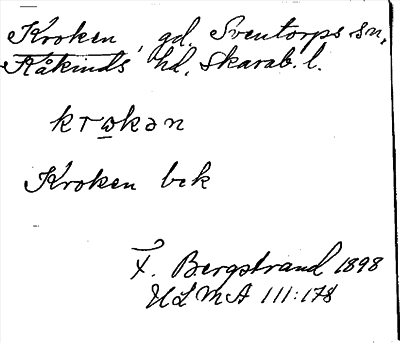 Kroken, gd. Sventorps sn,
Kåkinds hd, Skarab. l.
krωkən
Kroken bek
F. Bergstrand 1898
ULMA 111:178